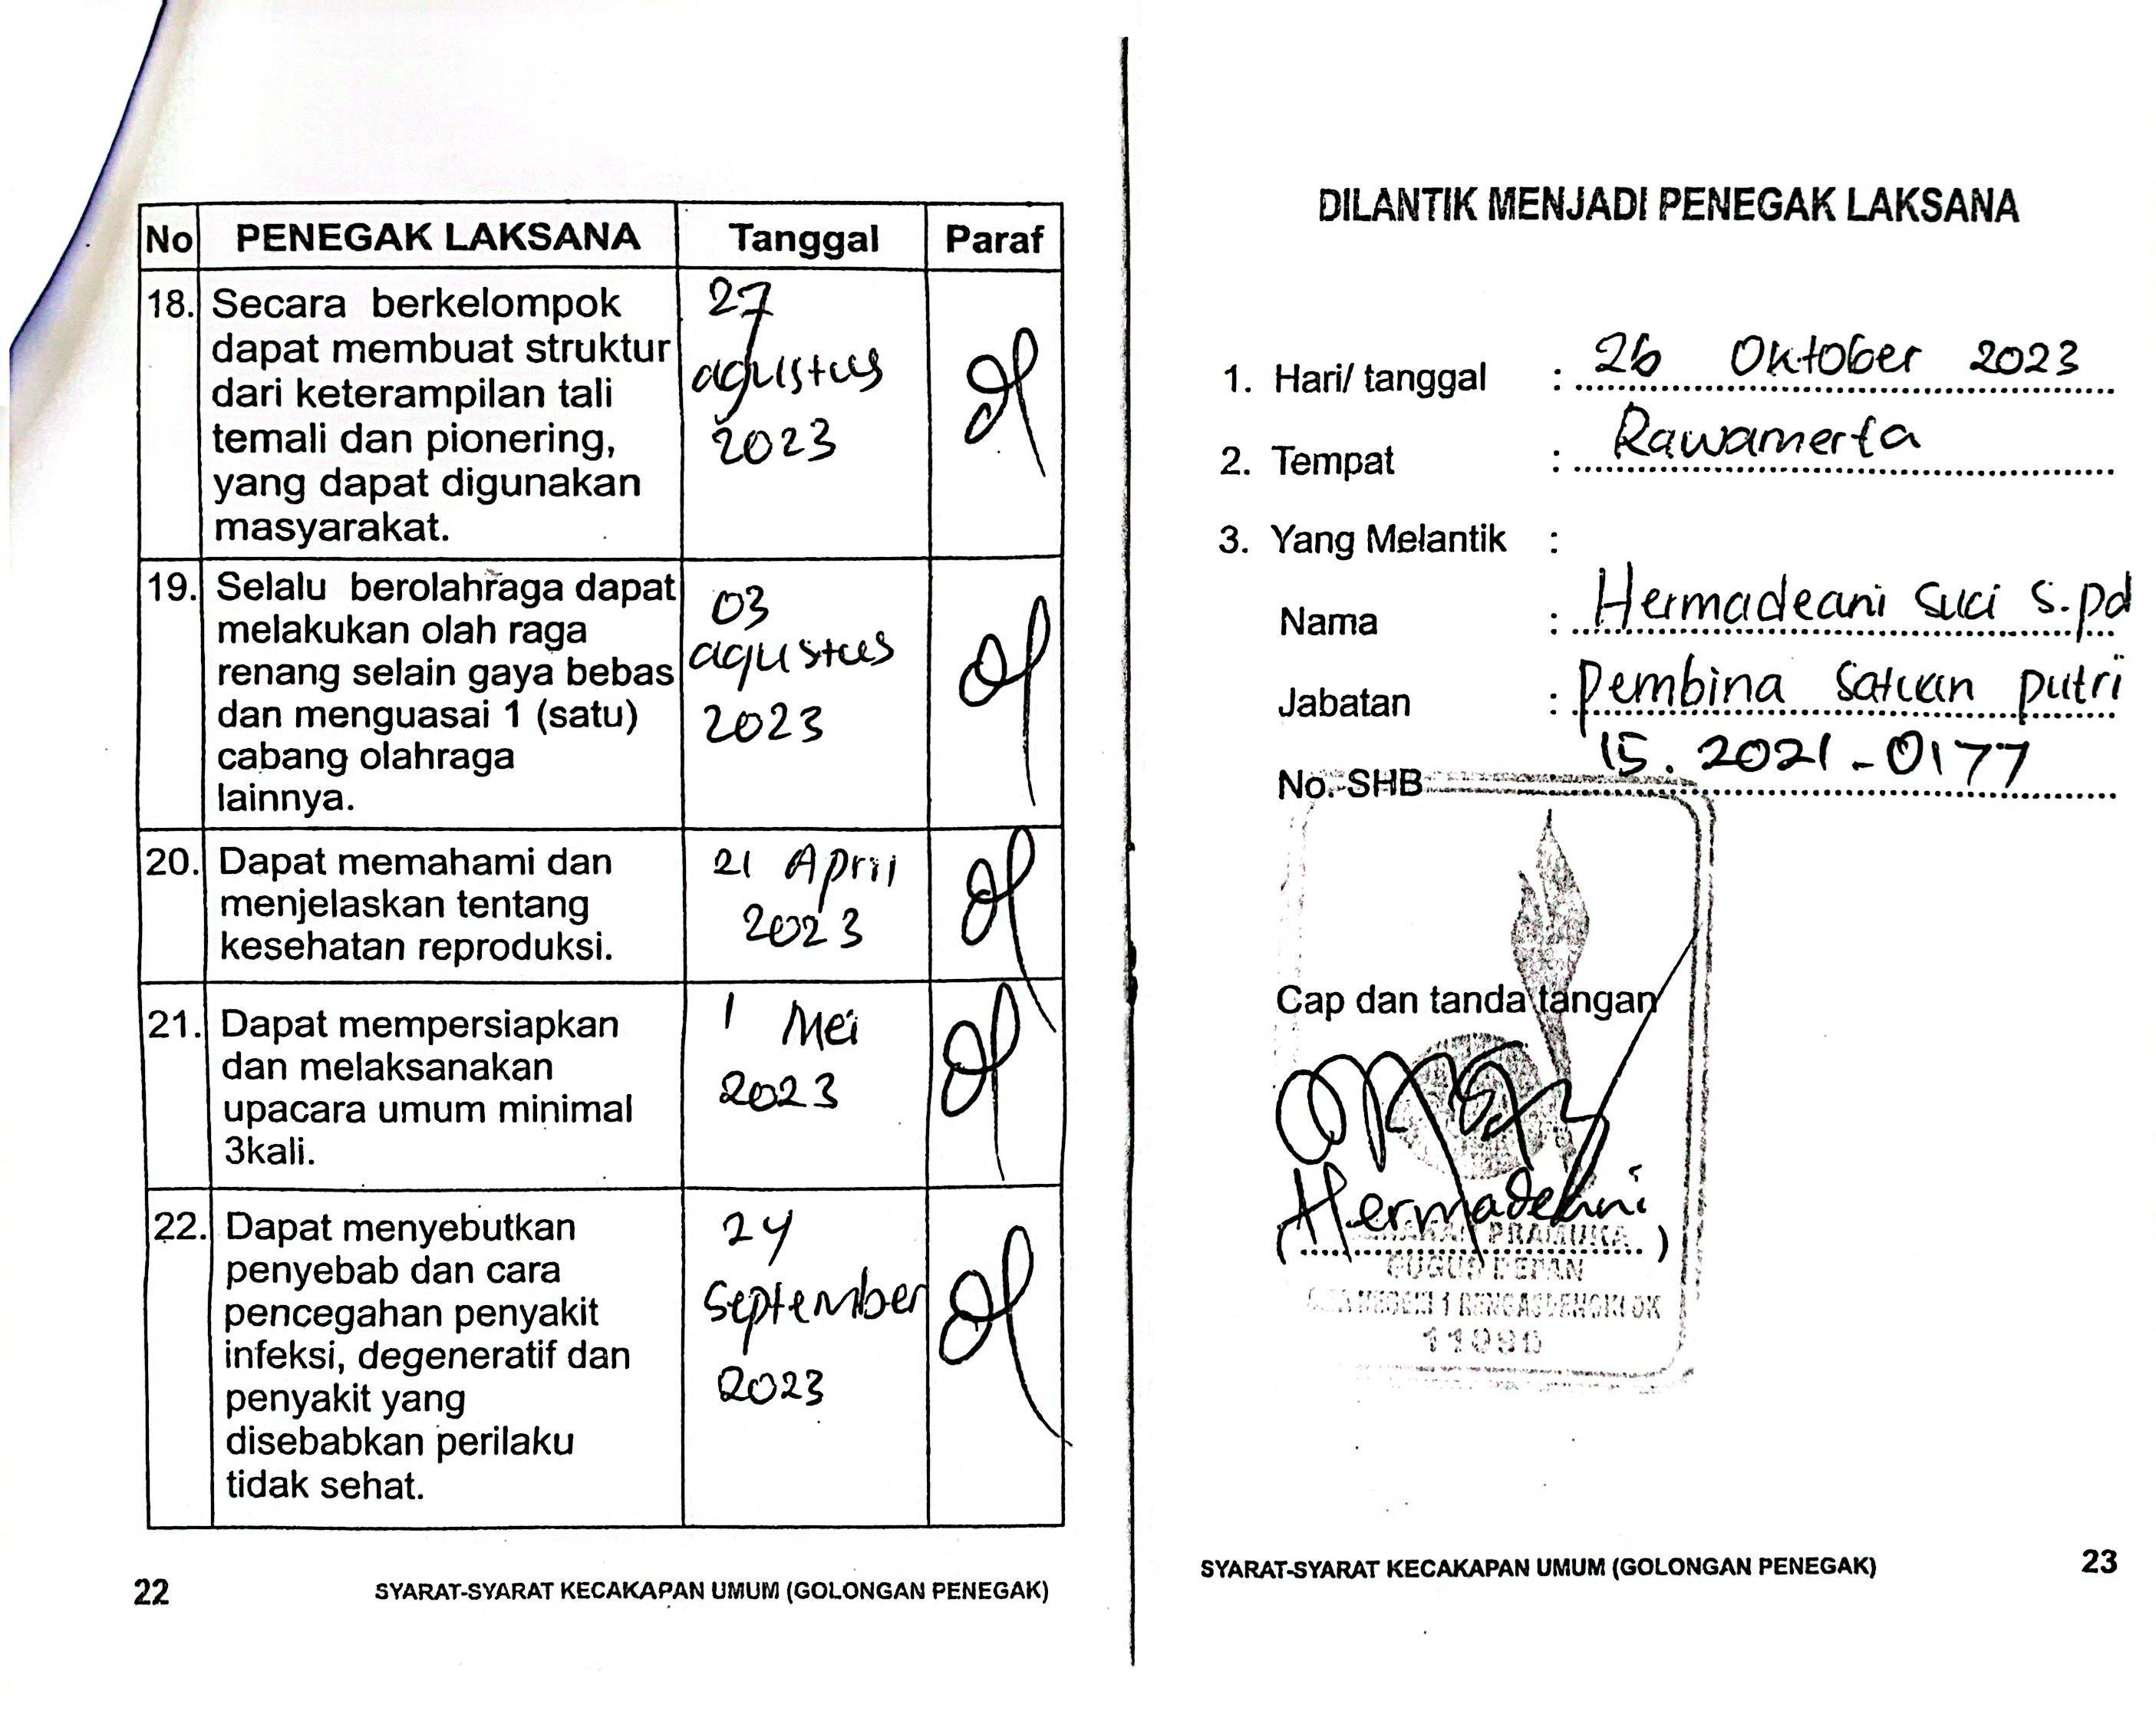 No PENEGAK LAKSANA Tanggal Paraf
18. Secara berkelompok
dapat membuat struktur
dari keterampilan tali
temali dan pionering,
yang dapat digunakan
masyarakat.
27
agustus
2023
19. Selalu berolahraga dapat
melakukan olah raga
renang selain gaya bebas
dan menguasai 1 (satu)
cabang olahraga
lainnya.
03
agustus
2023
20. Dapat memahami dan
menjelaskan tentang
kesehatan reproduksi.
21 April
2023
21. Dapat mempersiapkan
dan melaksanakan
upacara umum minimal
3kali.
1 Mei
2023
22. Dapat menyebutkan
penyebab dan cara
pencegahan penyakit
infeksi, degeneratif dan
penyakit yang
disebabkan perilaku
tidak sehat.
24
September
2023
22 SYARAT-SYARAT KECAKAPAN UMUM (GOLONGAN PENEGAK)
DILANTIK MENJADI PENEGAK LAKSANA
1. Hari/ tanggal : 26 Oktober 2023
2. Tempat : Rawamerta
3. Yang Melantik :
Nama : Hermadeani Suci S.pd
Jabatan : Pembina Satuan putri
No. SHB 15.2021-0177
Cap dan tanda tangan
(Hermadeani)
PRAMUKA
GUGUS DEPAN
SYARAT-SYARAT KECAKAPAN UMUM (GOLONGAN PENEGAK) 23